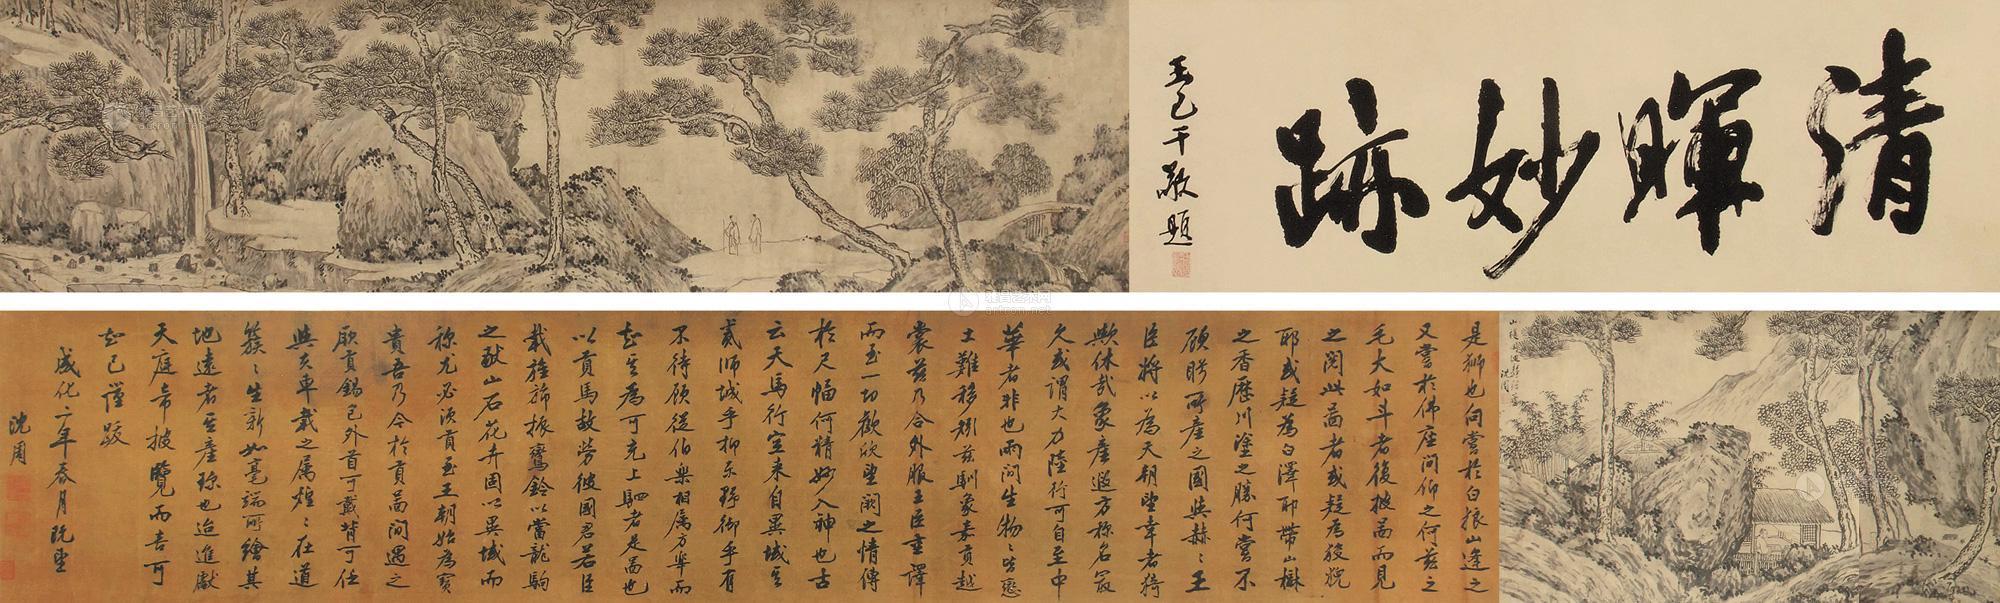 清暉妙跡
王己千敬題
沈周
是獅也向嘗於白狼山逢之
又嘗於佛座間仰之何茲之
毛大如斗者後披啚而見
之閱此啚者或疑為狻猊
耶或疑為白澤耶帶山樾
之香歷川塗之勝何嘗不
顧盻所產之國與赫〻王
臣將以為天朝望幸者猗
歟休哉象產遐方称名最
久或謂大力陸行可自至中
華者非也兩間生物〻皆戀
土難移矧茲馴象來貢越
裳茲乃合外服王臣重譯
而至一切歡欣望闕之情傳
於尺幅何精妙入神也古
云天馬行空来自異域
貳師城乎抑亦御乎有
不待顧從伯樂相属方皋而
知其為可充上駟者是啚也
以貢馬敖勞彼國君若臣
載旌旆振鸞鈴以當龍駒
之献山石花卉固以異域而
称尤必須貢至王朝始為寶
貴吾乃今於貢啚間遇之
厥貢錫已外首可戴背可任
與夫車載之属煌〻在道
簇〻生新如毫端所繪其
地遠者至產珎也迨進獻
天庭希披覽而吉可
知已謹跋
成化二年春月既望
沈周
雅昌艺术网
artron.net